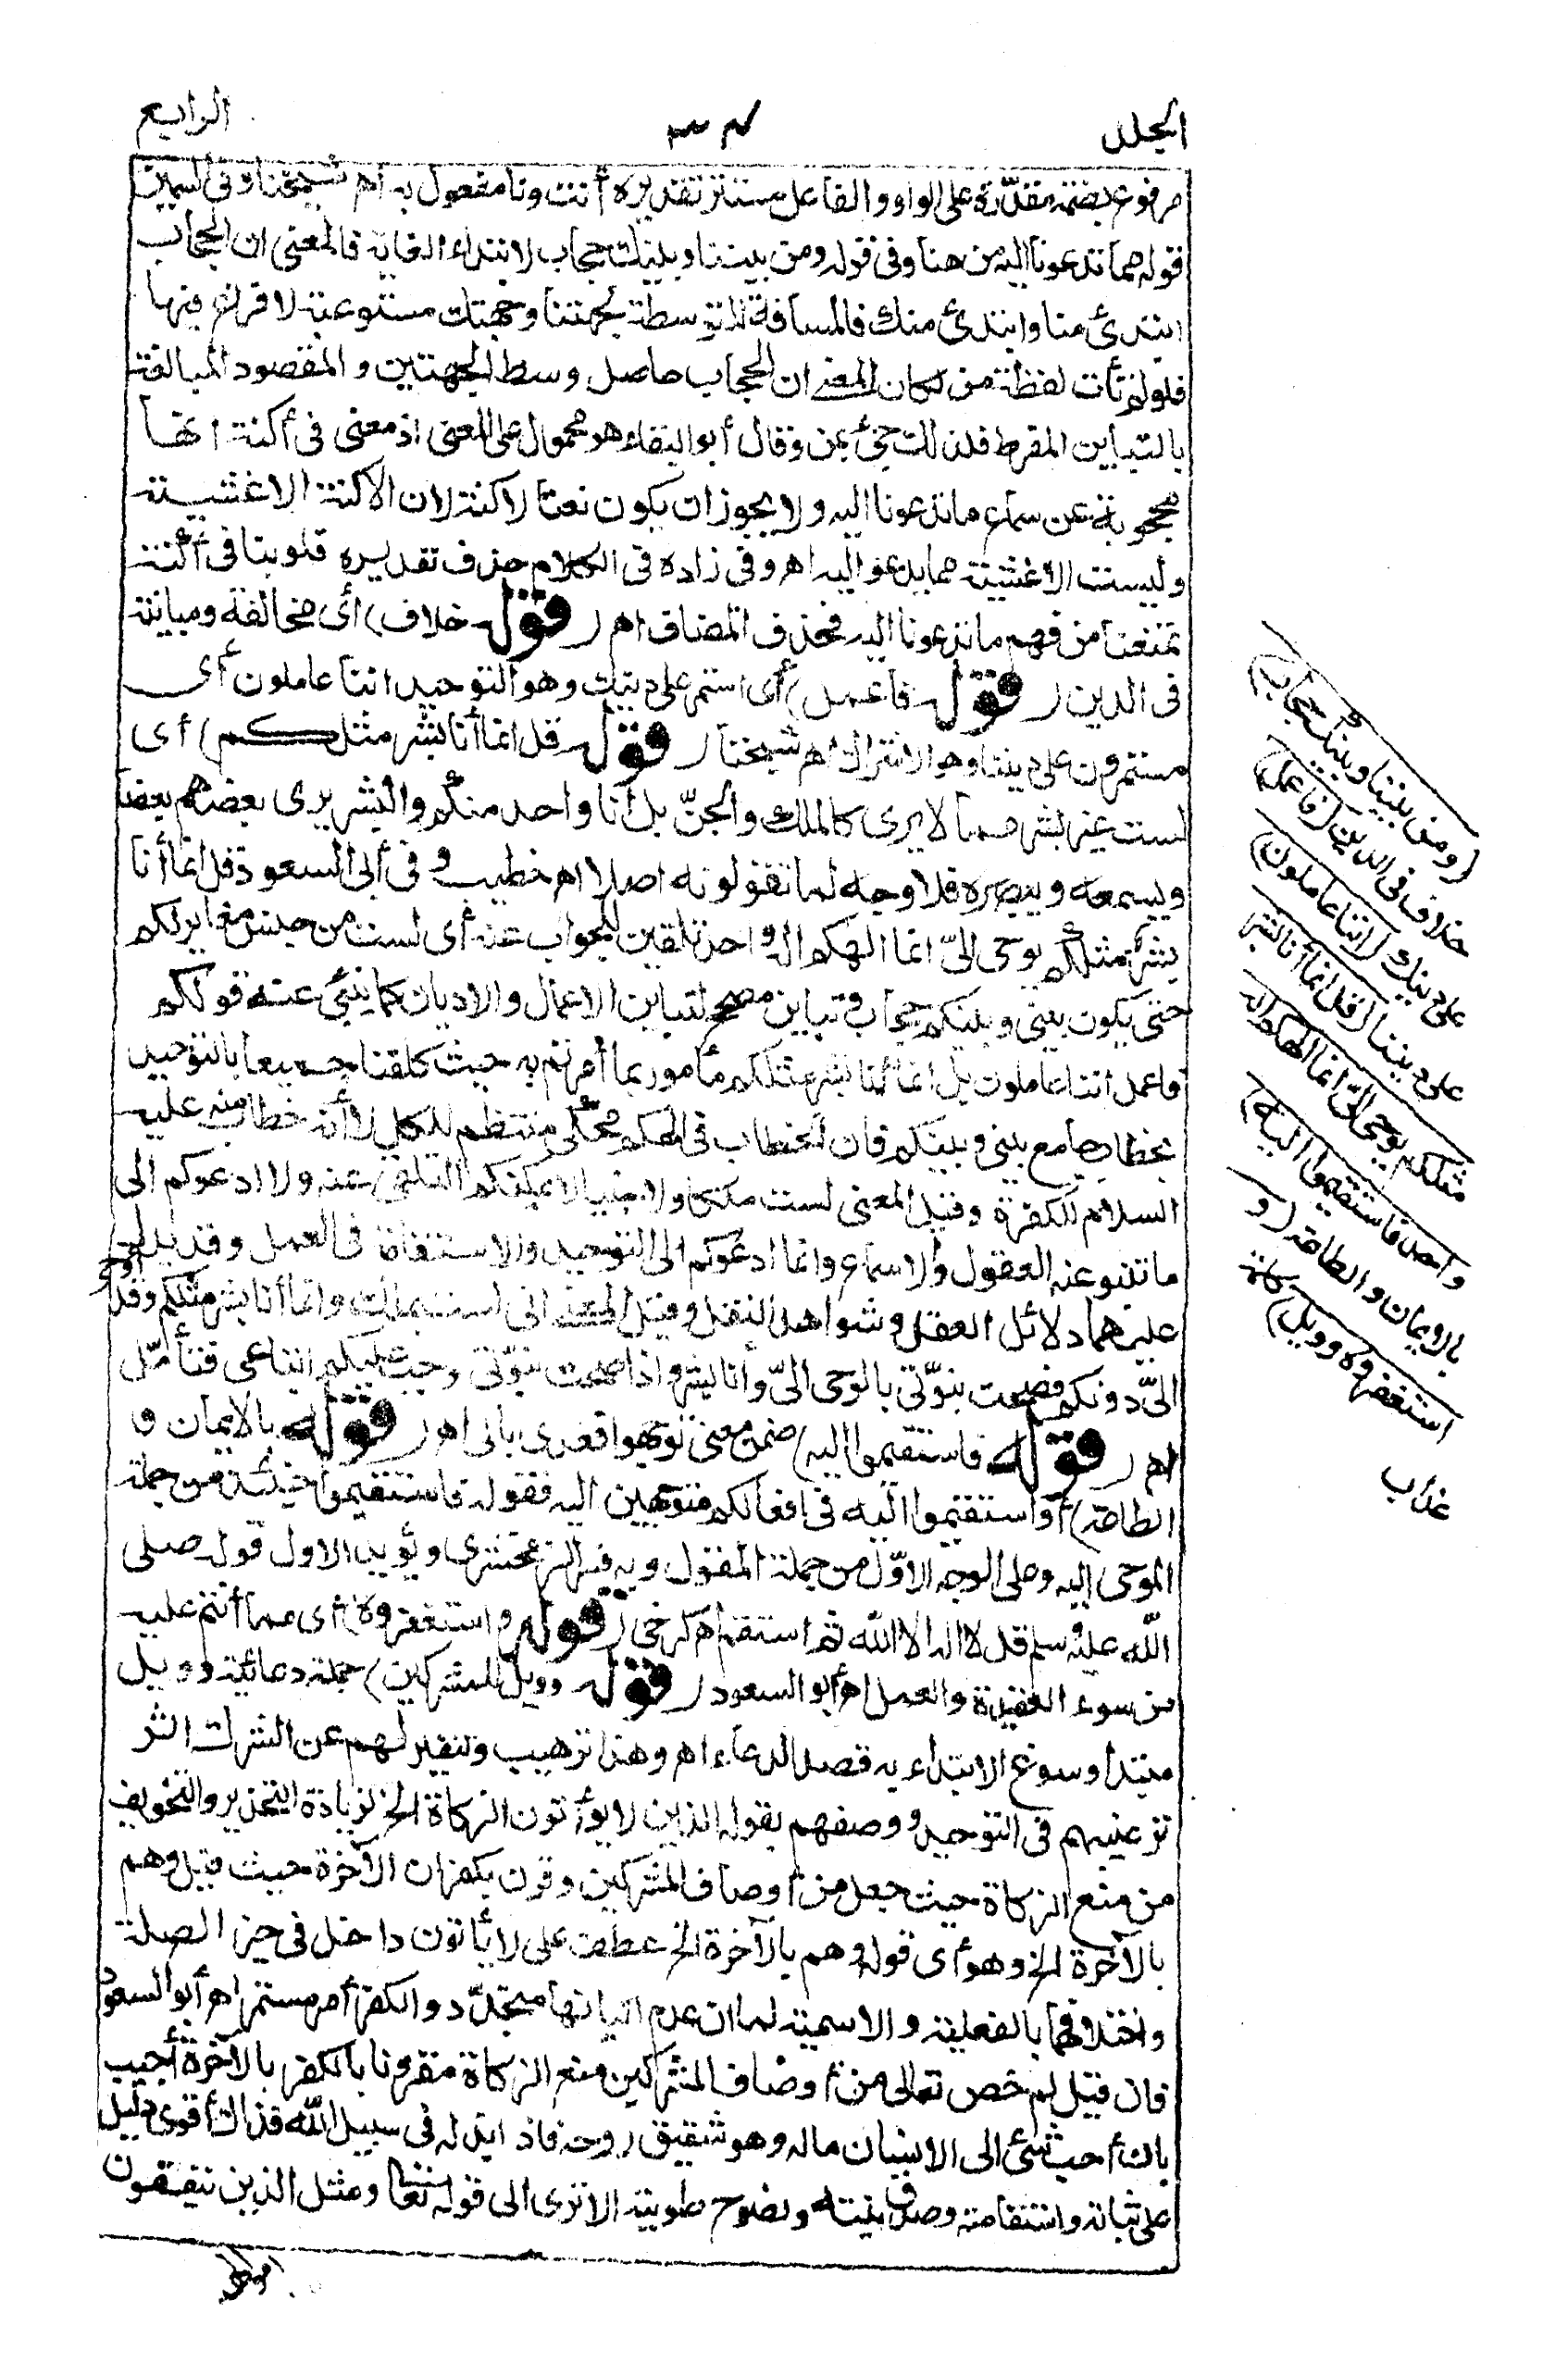 الجلد
٣٤
الرابع
مرفوع بضمة مقدّرة على الواو والفاعل مستتر تقديره أنت ونا مفعول به اهـ شيخنا وفى السمين
قوله مما تدعونا اليه من هنا وفى قوله ومن بيننا وبينك حجاب لابتداء الغاية فالمعنى ان الحجاب
ابتدئ منا وابتدئ منك فالمسافة المتوسطة لجهتنا وجهتك مستوعبة لا فراغ فيها
فلو لم تأت لفظة من لكان المعنى ان الحجاب حاصل وسط الجهتين والمقصود المبالغة
بالتباين المفرط فلذلك جئ بمن وقال أبو البقاء هو محمول على المعنى اذ معنى فى أكنة انها
محجوبة عن سماع ما تدعونا اليه ولا يجوز ان يكون نعتا لاكنة لان الاكنة الاغشية
وليست الاغشية مما يدعو اليه اهـ وفى زاده فى الكلام حذف تقديره قلوبنا فى أكنة
تمنعنا من فهم ما تدعونا اليه فحذف المضاف اهـ (قوله خلاف) أى مخالفة ومباينة
فى الدين (قوله فاعمل) أى استمر على دينك وهو التوحيد اننا عاملون أى
مستمرون على ديننا وهو الاشراك اهـ شيخنا (قوله قل انما أنا بشر مثلكم) أى
لست غير بشر مما لا يرى كالملك والجنّ بل أنا واحد منكم والبشر يرى بعضهم بعضا
ويسمعه ويبصره فلا وجه لما تقولونه اصلا اهـ خطيب وفى أبى السعود قل انما أنا
بشر مثلكم يوحى الىّ انما الهكم اله واحد تلقين للجواب عنه أى لست من جنس مغاير لكم
حتى يكون بينى وبينكم حجاب وتباين مصحح لتباين الاعمال والاديان كما ينبئ عنه قولكم
فاعمل اننا عاملون بل انما أنا بشر مثلكم مأمور بما أمرتم به حيث كلفنا جميعا بالتوحيد
بخطاب جامع بينى وبينكم فان الخطاب فى الهكم محكى منتظم للكل لا أنه خطاب منه عليه
السلام للكفرة وقيل المعنى لست ملكا ولا جنيا لا يمكنكم التلقى عنه ولا ادعوكم الى
ما تنبو عنه العقول والاسماع وانما ادعوكم الى التوحيد والاستقامة فى العمل وقد يدل
عليهما دلائل العقل وشواهد النقل وقيل المعنى انى لست بملك وانما أنا بشر مثلكم وقد أوحى
الىّ دونكم فصحت بنبوّتى بالوحى الىّ وأنا بشر واذا صحت نبوّتى وجب عليكم اتباعى فتأمّل
اهـ (قوله فاستقيموا اليه) ضمن معنى توجهوا فعدى بالى اهـ (قوله بالايمان و
الطاعة) أو استقيموا اليه فى افعالكم متوجهين اليه فقوله فاستقيموا حينئذ من جملة
الموحى إليه وعلى الوجه الاوّل من جملة المقول وبه فسر الزمخشرى ويؤيد الاول قوله صلى
الله عليه وسلم قل لا اله الا الله ثم استقم اهـ كرخى (قوله واستغفروه) أى مما أنتم عليه
من سوء العقيدة والعمل اهـ أبو السعود (قوله وويل للمشركين) جملة دعائية وويل
مبتدا وسوغ الابتداء به قصد الدعاء اهـ وهذا ترهيب وتنفير لهم عن الشرك اثر
ترغيبهم فى التوحيد ووصفهم بقوله الذين لا يؤتون الزكاة الخ لزيادة التحذير والتخويف
من منع الزكاة حيث جعل من أوصاف المشركين وقرن بكفران الآخرة حيث قيل وهم
بالآخرة الخ وهو أى قوله وهم بالآخرة الخ عطف على لا يأتون داخل فى حيز الصلة
واختلافهما بالفعلية والاسمية لما ان عدم اتيانها متجدّد والكفر أمر مستمر اهـ أبو السعود
فان قيل لم خص تعالى من أوصاف المشركين منع الزكاة مقرونا بالكفر بالآخرة أجيب
بان أحب شئ الى الانسان ماله وهو شقيق روحه فاذا بذله فى سبيل الله فذاك أقوى دليل
على ثباته واستقامته وصدق نيته ونصوح طويته الا ترى الى قوله تعالى ومثل الذين ينفقون
(ومن بيننا وبينك حجاب)
خلاف فى الدين (فاعمل)
على دينك (اننا عاملون)
على ديننا (قل انما أنا بشر
مثلكم يوحى الىّ انما الهكم اله
واحد فاستقيموا اليه)
بالايمان والطاعة (و
استغفروه وويل) كلمة
عذاب